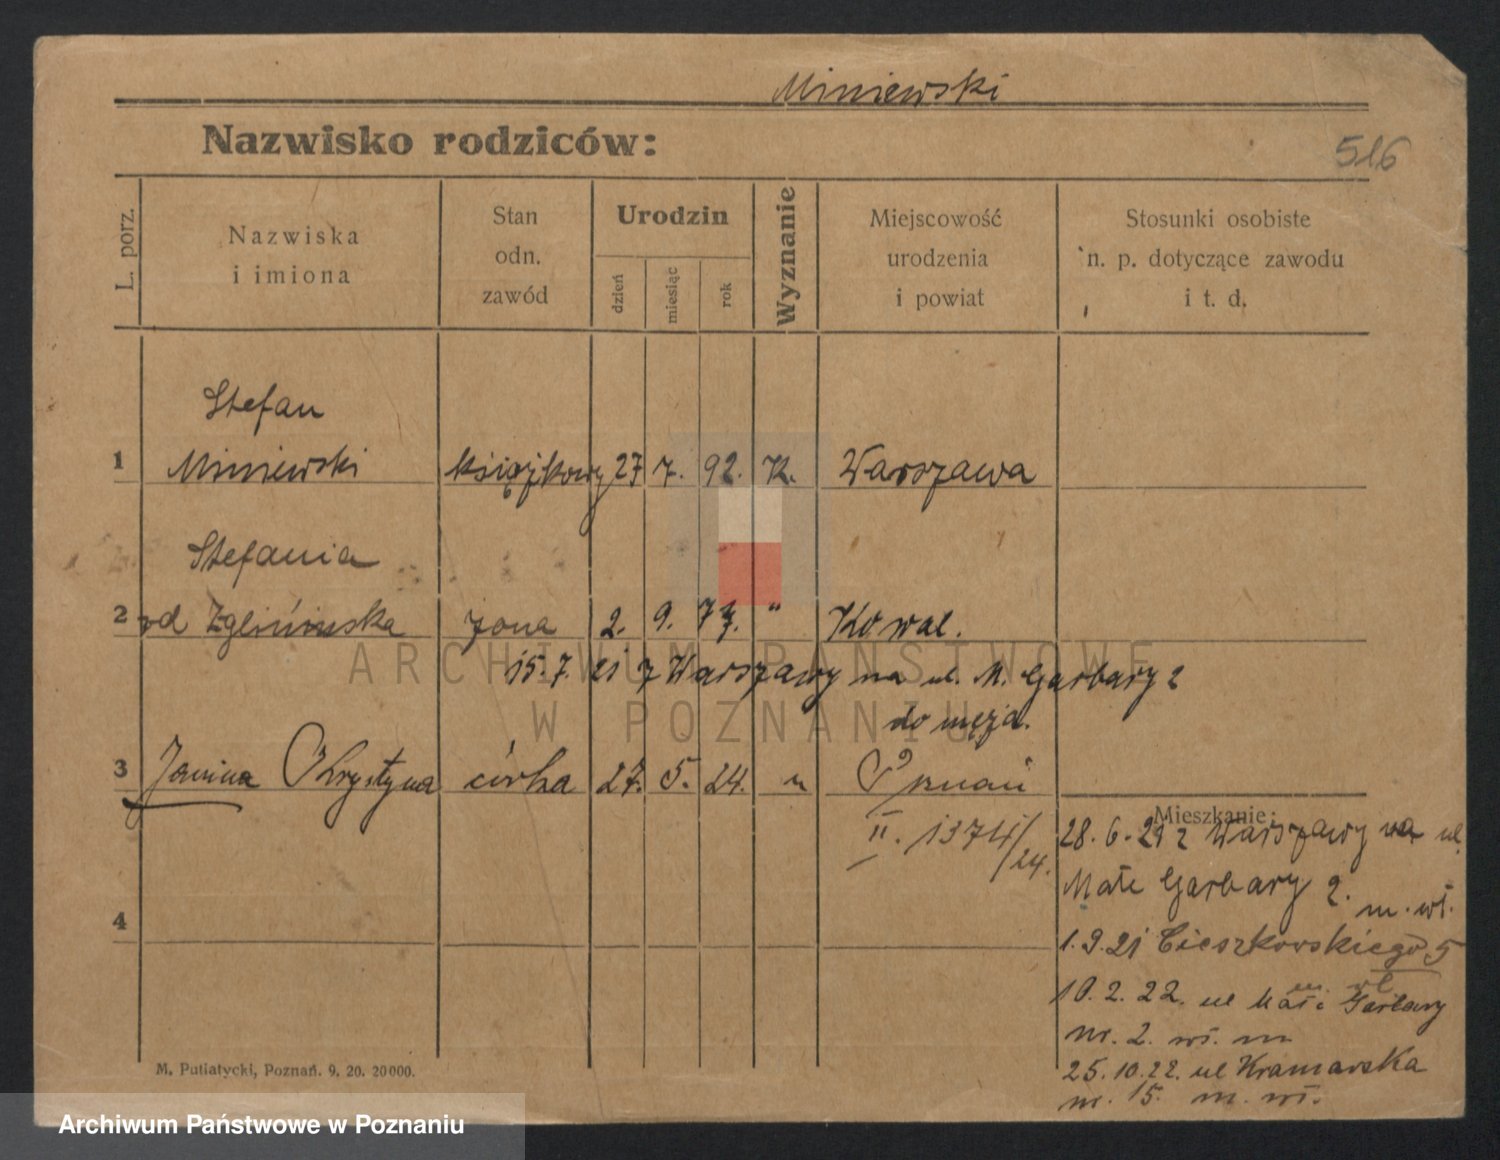 Miniewski
Nazwisko rodziców:
516
L. porz.
Nazwiska
i imiona
Stan
odn.
zawód
Urodzin
dzień
miesiąc
rok
Wyznanie
Miejscowość
urodzenia
i powiat
Stosunki osobiste
n. p. dotyczące zawodu
i t. d.
Stefan
1 Miniewski książkowy 27 7. 92. K. Warszawa
Stefania
2 od Zglinińska żona 2. 9. 77. " Kowal.
ARCHIWUM PAŃSTWOWE
15.7. 21 z Warszawy na ul. M. Garbary 2
W POZNANIU
do męża.
3 Janina Krystyna córka 27. 5. 24. " Poznań
II. 1374/24.
Mieszkanie:
28. 6. 21 z Warszawy na ul.
Małe Garbary 2. m. wł.
4
1. 9. 21 Cieszkowskiego 5
m. wł.
10. 2. 22. ul Małe Garbary
nr. 2. wł. m
25. 10. 22. ul Kramarska
nr. 15. m. wł.
M. Putiatycki, Poznań. 9. 20. 20000.
Archiwum Państwowe w Poznaniu